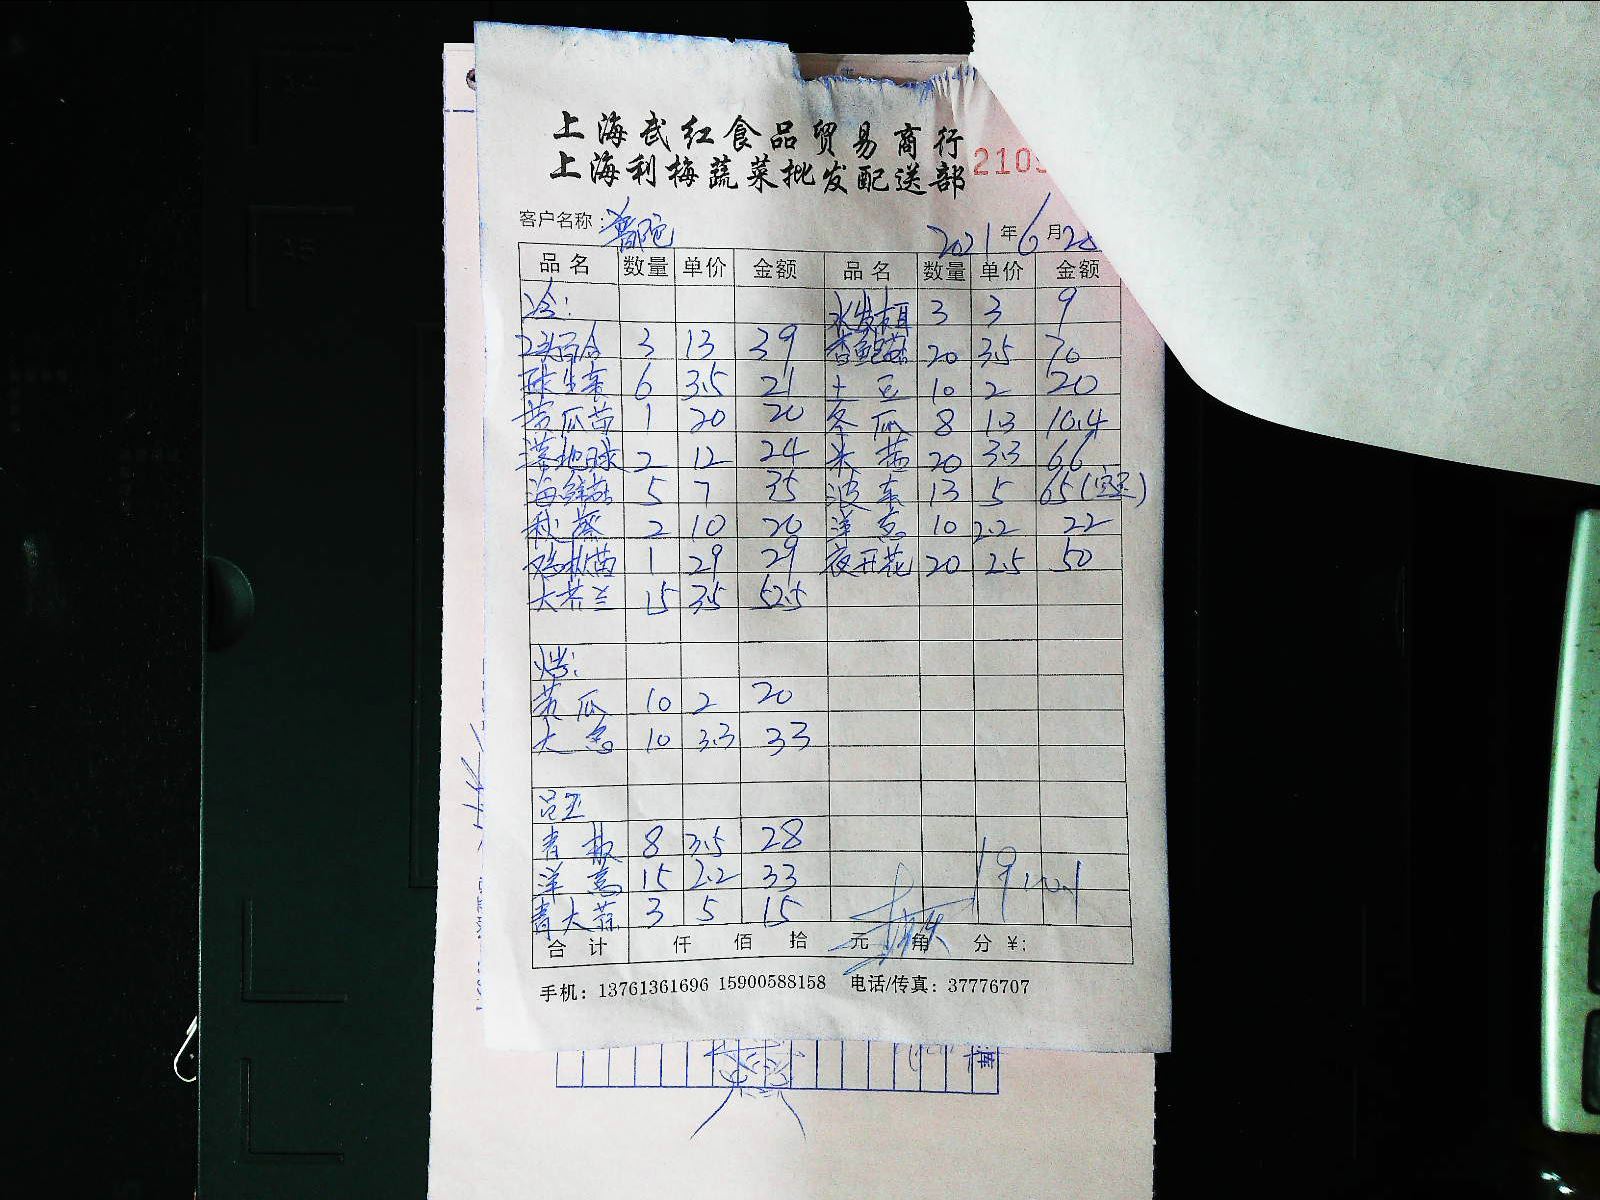 上海武红食品贸易商行
上海利梅蔬菜批发配送部
2105
客户名称：普陀 2021年6月20
品名 数量 单价 金额 品名 数量 单价 金额
冷： 水发木耳 3 3 9
2头百合 3 13 39 杏鲍菇 20 3.5 70
球生菜 6 3.5 21 土豆 10 2 20
苦瓜苗 1 20 20 冬瓜 8 1.3 10.4
落地球 2 12 24 米苋 20 3.3 66
海鲜菇 5 7 35 波菜 13 5 65(宝宝)
秋葵 2 10 20 洋葱 10 2.2 22
鸡枞菌 1 29 29 夜开花 20 2.5 50
大芥兰 15 3.5 52.5
烤：
黄瓜 10 2 20
大葱 10 3.3 33
吕玉
青椒 8 3.5 28
洋葱 15 2.2 33
青大蒜 3 5 15
合计 仟 佰 拾 元 角 分 ¥:
手机：13761361696 15900588158 电话/传真：37776707